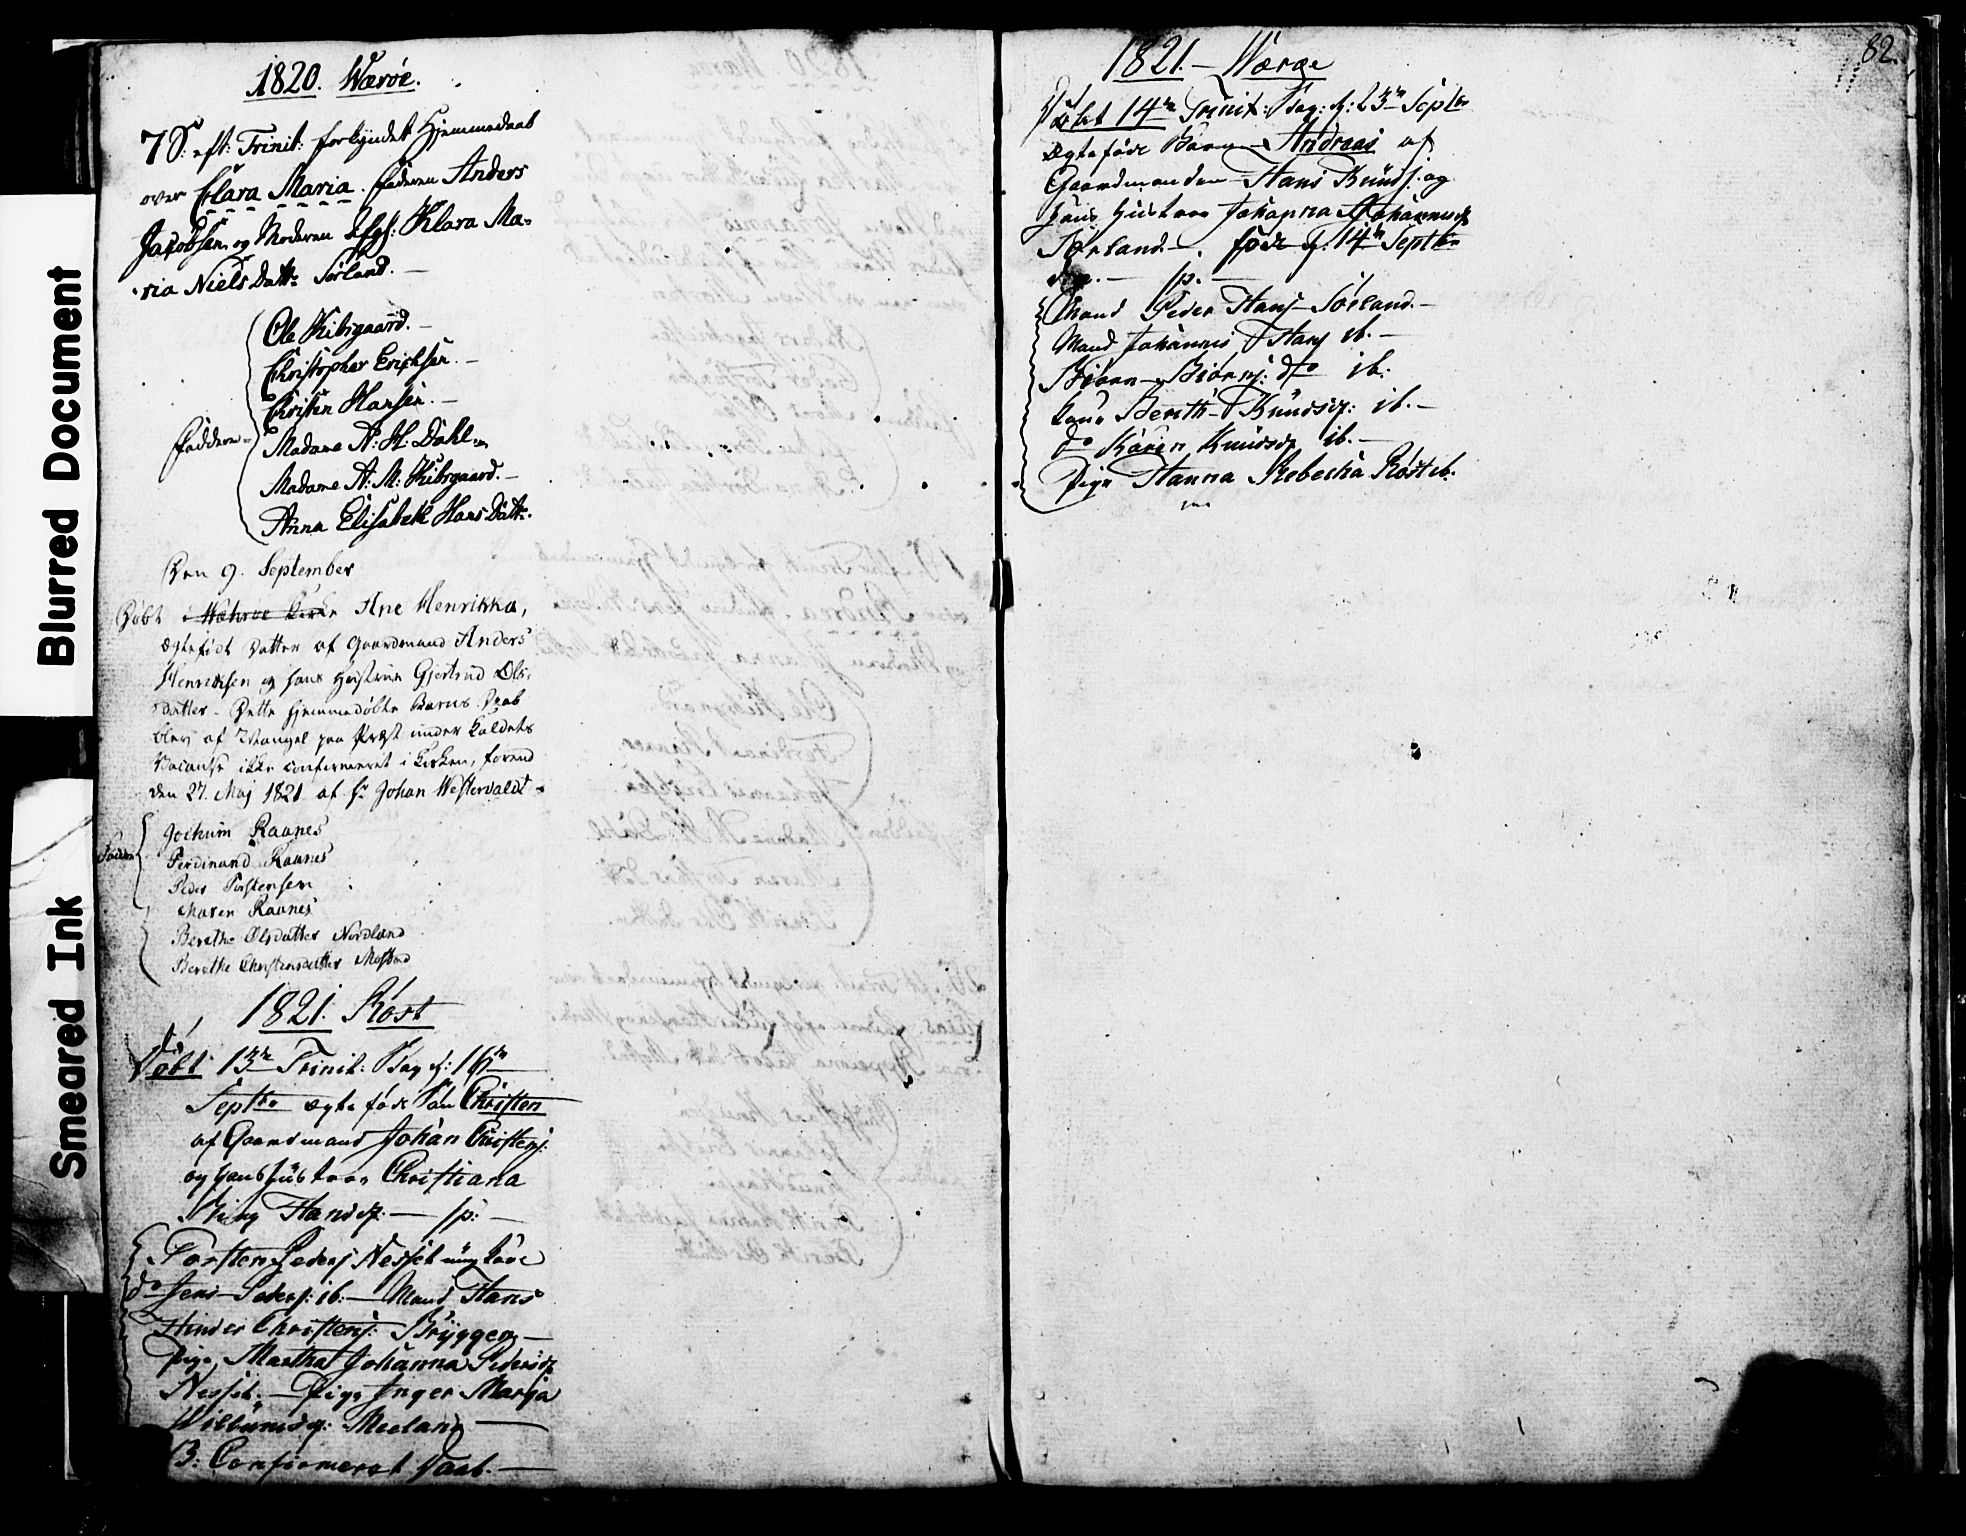 1820. Wærøe.
7 S: eft: Trinit: forkyndet Hjemmedaab
over Clara Maria. Faderen Anders
Jacobsen og Moderen Afgl: Klara Ma-
ria Niels Datt: Sørland. —
Ole Kibsgaard. —
Christopher Erichsen. —
Christen Hansen. —
Faddere
Madame A: H: Dahl
Madame A: M: Kibsgaard. —
Anna Elisabeth Hans Datt:
Den 9. September
Døbt i Wæhroe Kirke Ane Henrikka,
ægtefødt Datter af Gaardmand Anders
Henriksen og hans Hustrue Gjertrud Ols-
datter - Dette hjemmedøbte Barns Daab
blev af Mangel paa Præst under Kaldets
Vacanse ikke confirmeret i Kirken, forend
den 27. Maj 1821 af Hr Johan Westervaldt
Faddere
Jochum Raanes
Ferdinand Raanes
Peder Torstensen
Maren Raanes
Berethe Olsdatter Nordland
Berethe Christensdatter Mostad
1821. Røst
Døbt 13de Trinit: Dag d: 16de
Septbr ægte føde Søn Christen
af Gaardmand Johan Christensj:
og hans Hustroe Christiana
Hansdr. — sp: —
Torsten Pedersj Nesset ung Karl
do Jens Pedersj: ib: — Mand Hans
Hinder Christensj: Bryggen —
Pige Martha Johanna Pedersdr
Nesset. — Pige Inger Marja
Meeland —
B: Confirmeret Daab. —
1821. — Wæroe
82.
Døbt 14de Trinit: Dag: d: 23de Septbr
ægteføde Barn — Andreas af
Gaardmanden Hans Knudsj: og
hans Hustroe Johanna Johannesdr
Sørland. — føde d. 14de Septbr
sp. —
Mand Peder Hansj Sørland. —
Mand Johannes Hansj ib. —
Biørn Biørnsj: do ib:
Kone Berith Knudsdr: ib. —
do Karen Knudsdr ib. —
Pige Hanna Rebecka Røst ib.
Blurred Document
Smeared Ink